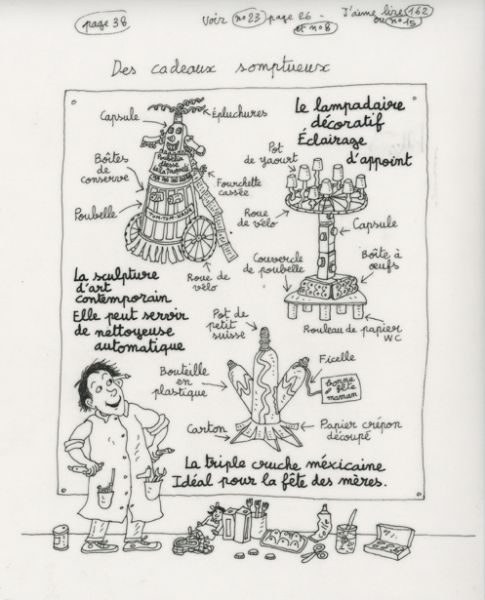 page 38
Voir n°23 page 26
et n°8
J'aime lire 162
ou n°15
Des cadeaux somptueux
Capsule
Épluchures
Boîtes
de
conserve
Poubelle
Fourchette
cassée
Roue de
vélo
La sculpture
d'art
contemporain
Elle peut servir
de nettoyeuse
automatique
Le lampadaire
décoratif
Éclairage
d'appoint
Pot
de yaourt
Roue
de vélo
Capsule
Couvercle
de poubelle
Boîte à
œufs
Rouleau de papier
WC
Pot de
petit
suisse
Bouteille
en
plastique
Ficelle
bonne
fête
maman
Carton
Papier crépon
découpé
La triple cruche méxicaine
Idéal pour la fête des mères.